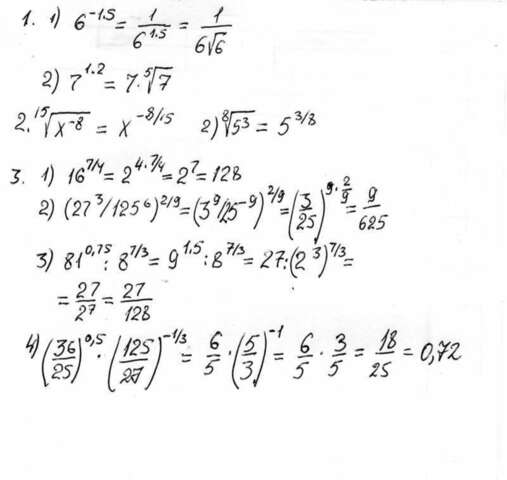 1. 1) 6^-1.5 = 1/6^1.5 = 1/6√6
2) 7^1.2 = 7·⁵√7
2. ¹⁵√x^-8 = x^-8/15 2) ⁸√5³ = 5^3/8
3. 1) 16^7/4 = 2^4·7/4 = 2^7 = 128
2) (27³/125⁶)^2/9 = (3⁹/25^-9)^2/9 = (3/25)^9·2/9 = 9/625
3) 81^0,75 : 8^7/3 = 9^1.5 : 8^7/3 = 27:(2³)^7/3 =
= 27/2^7 = 27/128
4) (36/25)^0,5 · (125/27)^-1/3 = 6/5 · (5/3)^-1 = 6/5 · 3/5 = 18/25 = 0,72